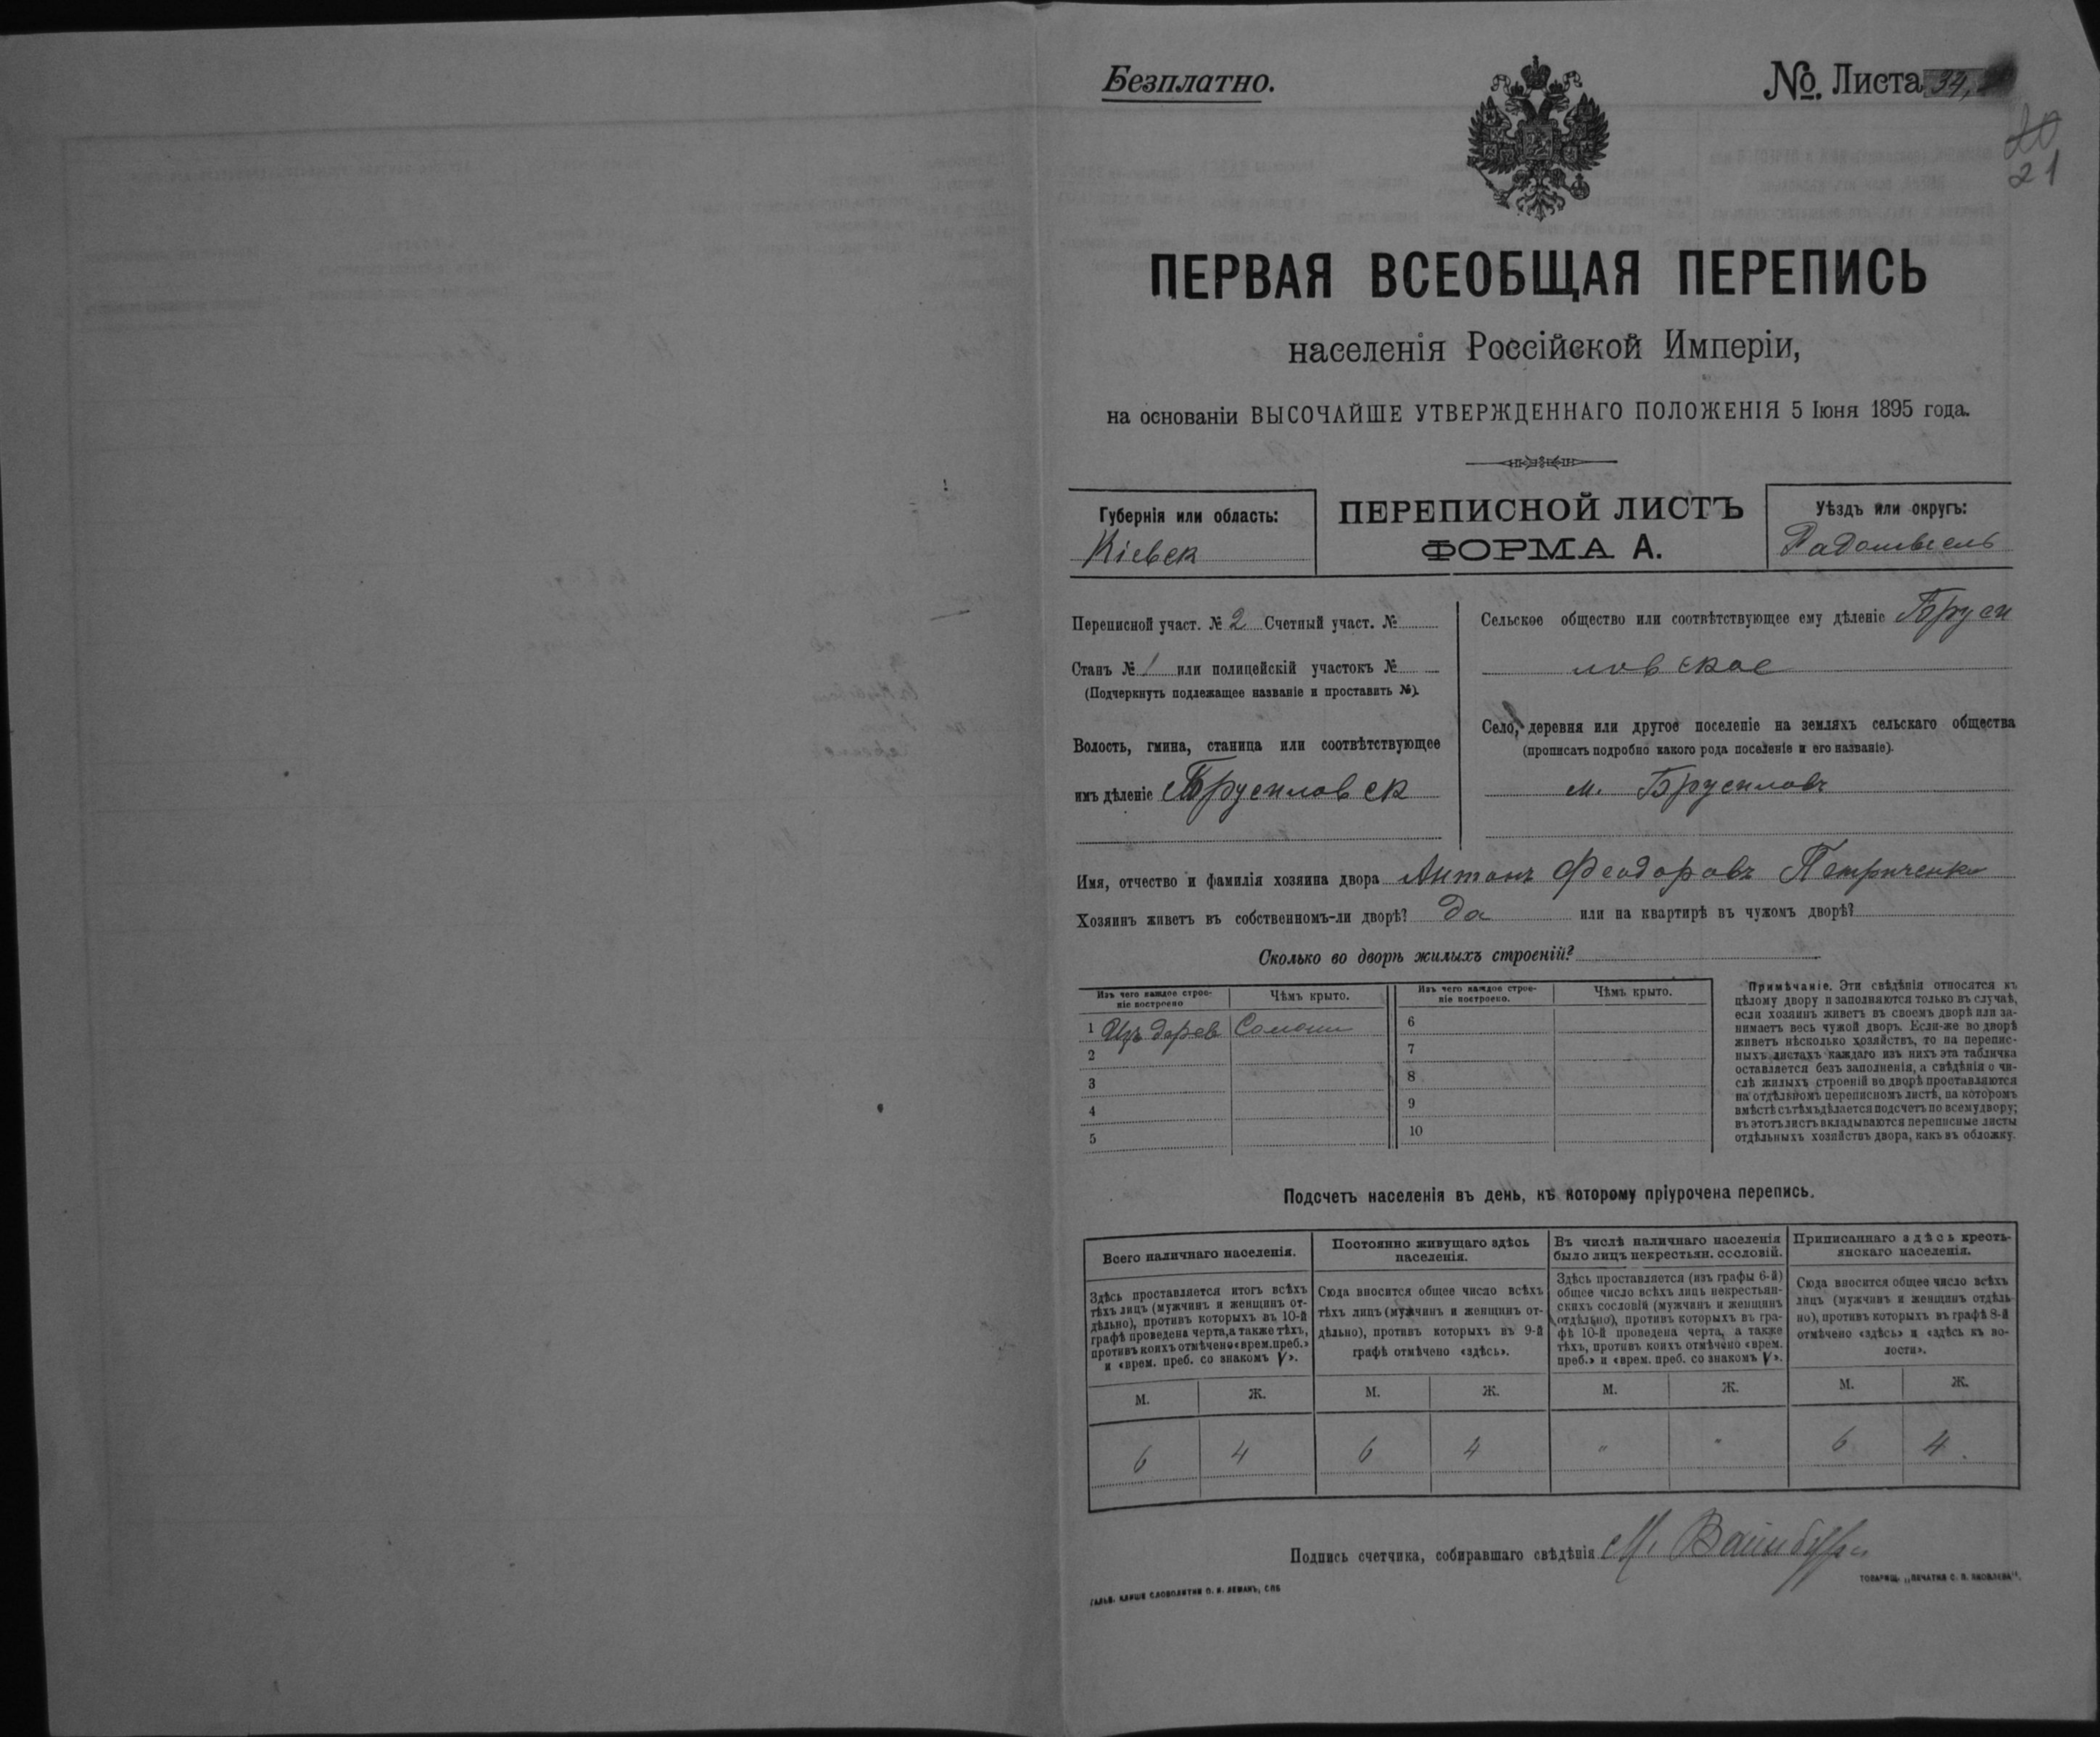 Безплатно.
№. Листа 34,
20
21
ПЕРВАЯ ВСЕОБЩАЯ ПЕРЕПИСЬ
населенія Россійской Имперіи,
на основаніи ВЫСОЧАЙШЕ УТВЕРЖДЕННАГО ПОЛОЖЕНІЯ 5 Іюня 1895 года.
Губернія или область:
Кіевск
ПЕРЕПИСНОЙ ЛИСТЪ
ФОРМА А.
Уѣздъ или округъ:
Радомысль
Переписной участ. № 2 Счетный участ. №
Станъ № 1 или полицейскій участокъ №
(Подчеркнуть подлежащее названіе и проставить №).
Волость, гмина, станица или соотвѣтствующее
имъ дѣленіе Брусиловск
Сельское общество или соотвѣтствующее ему дѣленіе Бруси
ловское
Село, деревня или другое поселеніе на земляхъ сельскаго общества
(прописать подробно какого рода поселеніе и его названіе).
м. Брусиловъ
Имя, отчество и фамилія хозяина двора Антонъ Феодоровъ Петриченко
Хозяинъ живетъ въ собственномъ-ли дворѣ? Да или на квартирѣ въ чужомъ дворѣ?
Сколько во дворѣ жилыхъ строеній?
Изъ чего каждое строе-
ніе построено
Чѣмъ крыто.
Изъ чего каждое строе-
ніе построено.
Чѣмъ крыто.
1 Изъ дерев Соломы
2
3
4
5
6
7
8
9
10
Примѣчаніе. Эти свѣдѣнія относятся къ
цѣлому двору и заполняются только въ случаѣ,
если хозяинъ живетъ въ своемъ дворѣ или за-
нимаетъ весь чужой дворъ. Если-же во дворѣ
живетъ нѣсколько хозяйствъ, то на перепис-
ныхъ листахъ каждаго изъ нихъ эта табличка
оставляется безъ заполненія, а свѣдѣнія о чи-
слѣ жилыхъ строеній во дворѣ проставляются
на отдѣльномъ переписномъ листѣ, на которомъ
вмѣстѣ съ тѣмъ дѣлается подсчетъ по всему двору;
въ этотъ листъ вкладываются переписные листы
отдѣльныхъ хозяйствъ двора, какъ въ обложку.
Подсчетъ населенія въ день, къ которому пріурочена перепись.
Всего наличнаго населенія.
Здѣсь проставляется итогъ всѣхъ
тѣхъ лицъ (мужчинъ и женщинъ от-
дѣльно), противъ которыхъ въ 10-й
графѣ проведена черта, а также тѣхъ,
противъ коихъ отмѣчено «врем. преб.»
и «врем. преб. со знакомъ V».
Постоянно живущаго здѣсь
населенія.
Сюда вносится общее число всѣхъ
тѣхъ лицъ (мужчинъ и женщинъ от-
дѣльно), противъ которыхъ въ 9-й
графѣ отмѣчено «здѣсь».
Въ числѣ наличнаго населенія
было лицъ некрестьян. сословій.
Здѣсь проставляется (изъ графы 6-й)
общее число всѣхъ лицъ некрестьян-
скихъ сословій (мужчинъ и женщинъ
отдѣльно), противъ которыхъ въ гра-
фѣ 10-й проведена черта, а также
тѣхъ, противъ коихъ отмѣчено «врем.
преб.» и «врем. преб. со знакомъ V».
Приписаннаго здѣсь кресть-
янскаго населенія.
Сюда вносится общее число всѣхъ
лицъ (мужчинъ и женщинъ отдѣль-
но), противъ которыхъ въ графѣ 8-й
отмѣчено «здѣсь» и «здѣсь къ во-
лости».
М. Ж. М. Ж. М. Ж. М. Ж.
6 4 6 4 " " 6 4.
Подпись счетчика, собиравшаго свѣдѣнія М.
ГАЛЬВ. КЛИШЕ СЛОВОЛИТНИ О. И. ЛЕМАНЪ, СПБ
ТОВАРИЩ. „ПЕЧАТНЯ С. П. ЯКОВЛЕВА".